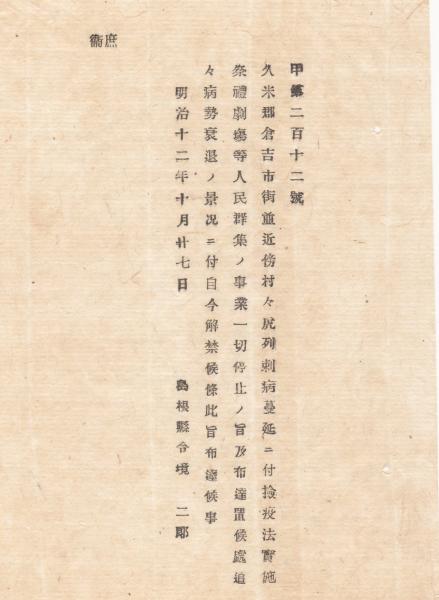 甲第二百十二號
久米郡倉吉市街並近傍村々虎列剌病蔓延ニ付撿疫法實施
祭禮劇塲等人民群集ノ事業一切停止ノ旨及布達置候處追
々病勢衰退ノ景况ニ付自今解禁候條此旨布達候事
明治十二年十月廿七日
島根縣令境 二郎
庶衞